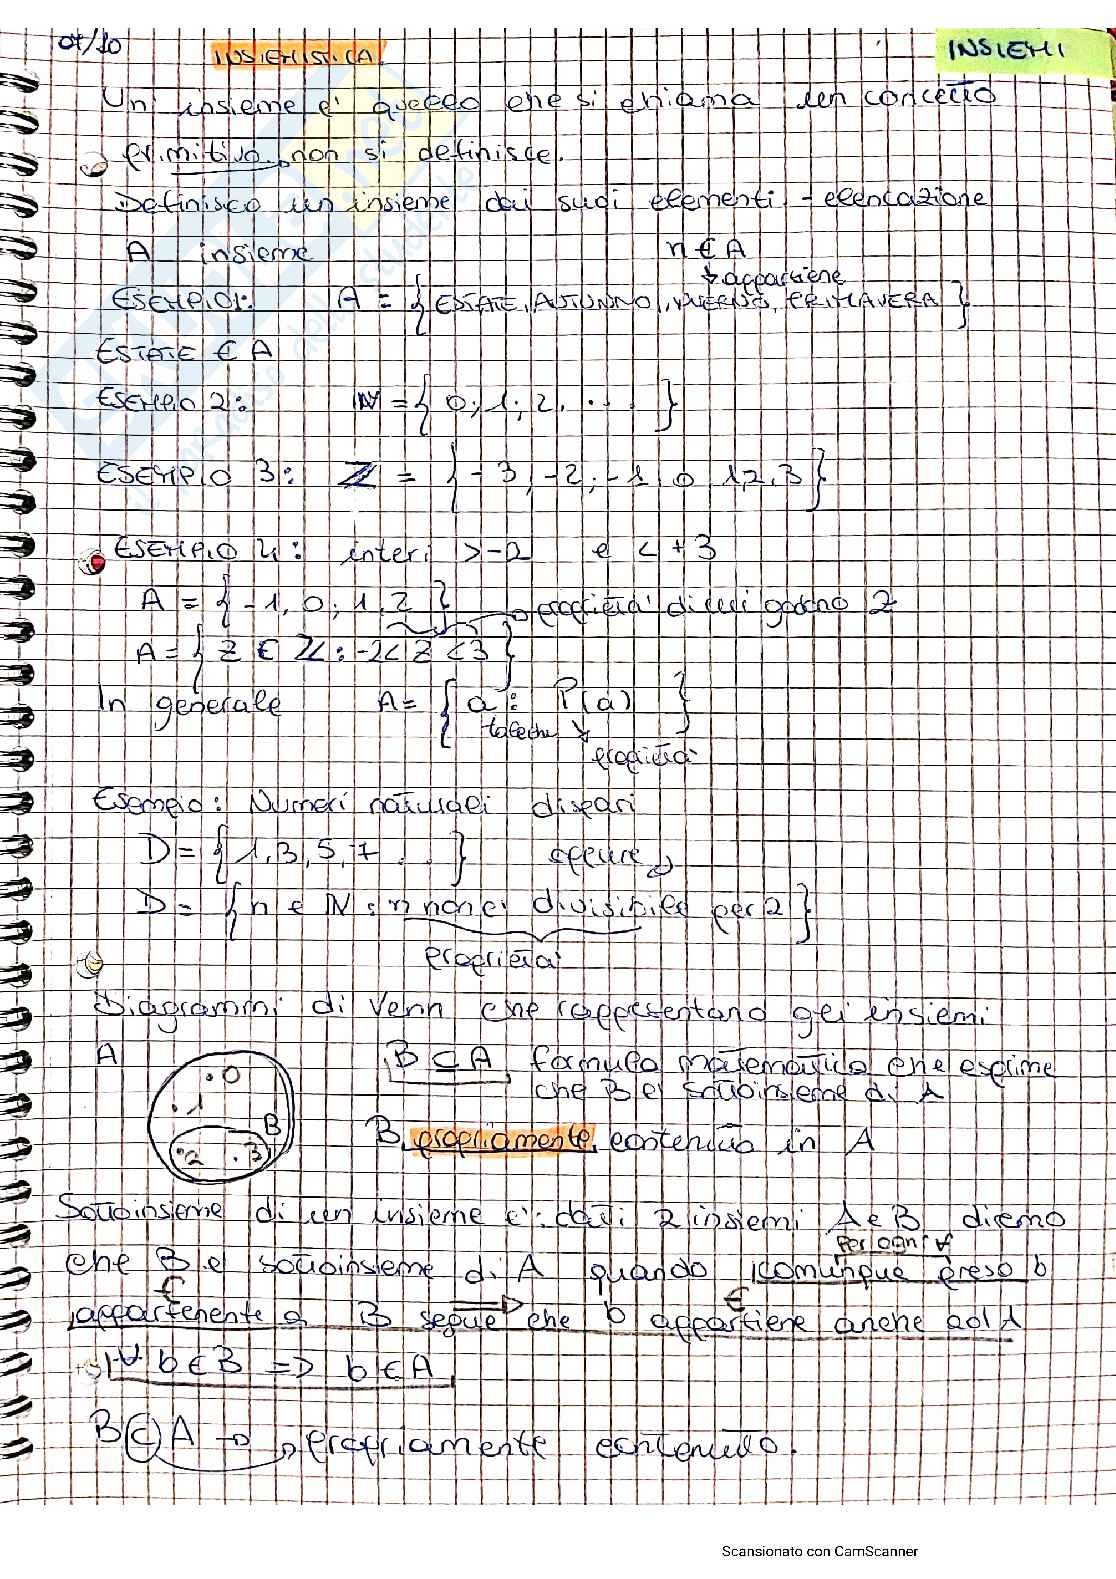 07/10
INSIEMISTICA
INSIEMI
Un insieme è quello che si chiama un concetto
primitivo, non si definisce.
Definisco un insieme dai suoi elementi - elencazione
A insieme n ∈ A
↳ appartiene
ESEMPIO 1: A = { ESTATE, AUTUNNO, INVERNO, PRIMAVERA }
ESTATE ∈ A
ESEMPIO 2: ℕ = { 0; 1; 2, ... }
ESEMPIO 3: ℤ = { -3, -2, -1, 0, 1, 2, 3 }
ESEMPIO 4: interi > -2 e < +3
A = { -1, 0, 1, 2 } → proprietà di cui godono z
A = { z ∈ ℤ : -2 < z < 3 }
In generale A = { a : P(a) }
tale che ↘
proprietà
Esempio: Numeri naturali dispari
D = { 1, 3, 5, 7 ... } oppure
D = { n ∈ ℕ : n non è divisibile per 2 }
proprietà
Diagrammi di Venn che rappresentano gli insiemi
A B ⊆ A formula matematica che esprime
che B è sottoinsieme di A
.0
.1
B
.2 .3
B propriamente contenuto in A
Sottoinsieme di un insieme è: dati 2 insiemi A e B diremo
per ogni ∀
che B è sottoinsieme di A quando comunque preso b
∈ ⇒ ∈
appartenente a B segue che b appartiene anche ad A
∀ b ∈ B => b ∈ A
B ⊂ A → propriamente contenuto.
Scansionato con CamScanner